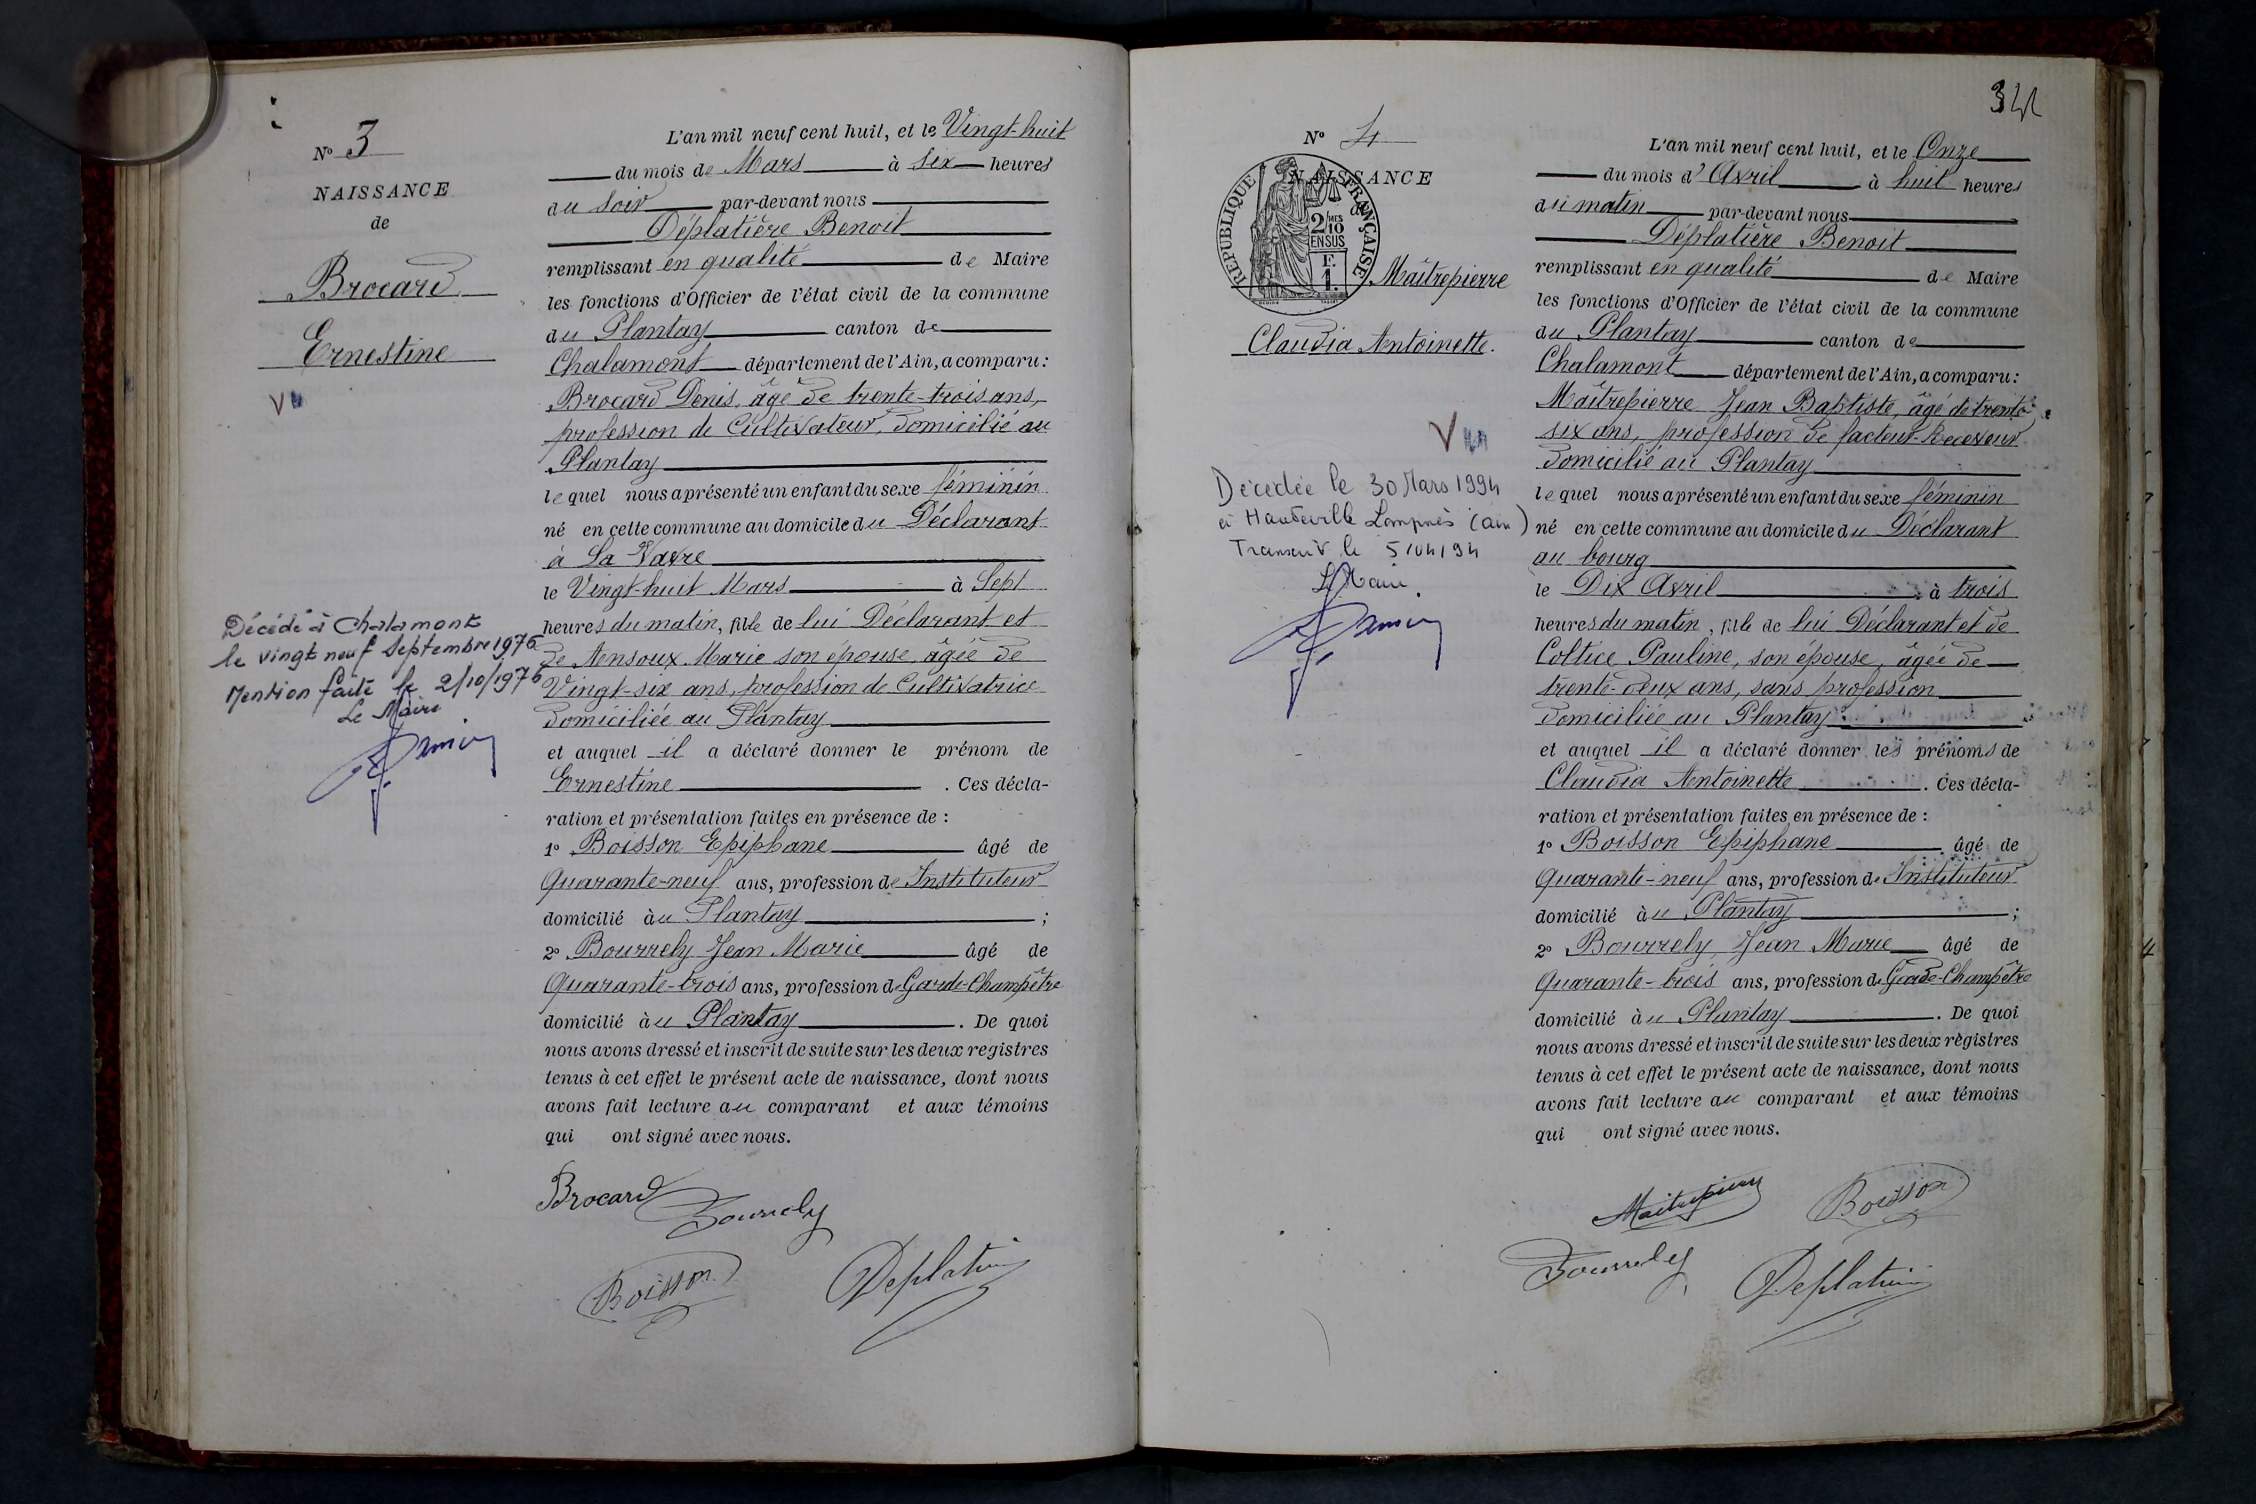 N° 3
NAISSANCE
de
Brocard
Ernestine
Vu
Décédé à Chalamont
le vingt neuf Septembre 1976
Mention faite le 2/10/1976
Le Maire
L'an mil neuf cent huit, et le Vingt-huit
du mois de Mars à six heures
du soir par-devant nous
Déplatière Benoit
remplissant en qualité de Maire
les fonctions d'Officier de l'état civil de la commune
du Plantay canton de
Chalamont département de l'Ain, a comparu :
Brocard Denis, âgé de trente-trois ans,
profession de Cultivateur, domicilié au
Plantay
lequel nous a présenté un enfant du sexe féminin
né en cette commune au domicile du Déclarant
à La Vavre
le Vingt-huit Mars à Sept
heures du matin, fille de lui Déclarant et
de Ansoux Marie son épouse, âgée de
Vingt-six ans, profession de Cultivatrice
domiciliée au Plantay
et auquel il a déclaré donner le prénom de
Ernestine . Ces décla-
ration et présentation faites en présence de :
1° Boisson Epiphane âgé de
Quarante-neuf ans, profession de Instituteur
domicilié au Plantay ;
2° Bourrely Jean Marie âgé de
Quarante-trois ans, profession de Garde-Champêtre
domicilié au Plantay . De quoi
nous avons dressé et inscrit de suite sur les deux registres
tenus à cet effet le présent acte de naissance, dont nous
avons fait lecture au comparant et aux témoins
qui ont signé avec nous.
Brocard Bourrely
Boisson Deplatière
341
N° 4
NAISSANCE
de
REPUBLIQUE FRANÇAISE
2/10 MES
EN SUS
F.
1.
Maîtrepierre
Claudia Antoinette.
Vu
Décédée le 30 Mars 1994
à Hauteville Lompnes (ain)
Transcrit le 5/04/94
Le Maire
L'an mil neuf cent huit, et le Onze
du mois d'Avril à huit heures
du matin par-devant nous
Déplatière Benoit
remplissant en qualité de Maire
les fonctions d'Officier de l'état civil de la commune
du Plantay canton de
Chalamont département de l'Ain, a comparu :
Maîtrepierre Jean Baptiste, âgé de trente
six ans, profession de facteur-Receveur
domicilié au Plantay
lequel nous a présenté un enfant du sexe féminin
né en cette commune au domicile du Déclarant
au bourg
le Dix Avril à trois
heures du matin, fille de lui Déclarant et de
Coltice Pauline, son épouse, âgée de
trente-deux ans, sans profession
domiciliée au Plantay
et auquel il a déclaré donner les prénoms de
Claudia Antoinette . Ces décla-
ration et présentation faites en présence de :
1° Boisson Epiphane âgé de
Quarante-neuf ans, profession de Instituteur
domicilié au Plantay ;
2° Bourrely Jean Marie âgé de
Quarante-trois ans, profession de Garde-Champêtre
domicilié au Plantay . De quoi
nous avons dressé et inscrit de suite sur les deux registres
tenus à cet effet le présent acte de naissance, dont nous
avons fait lecture au comparant et aux témoins
qui ont signé avec nous.
Maitrepierre Boisson
Bourrely Deplatière